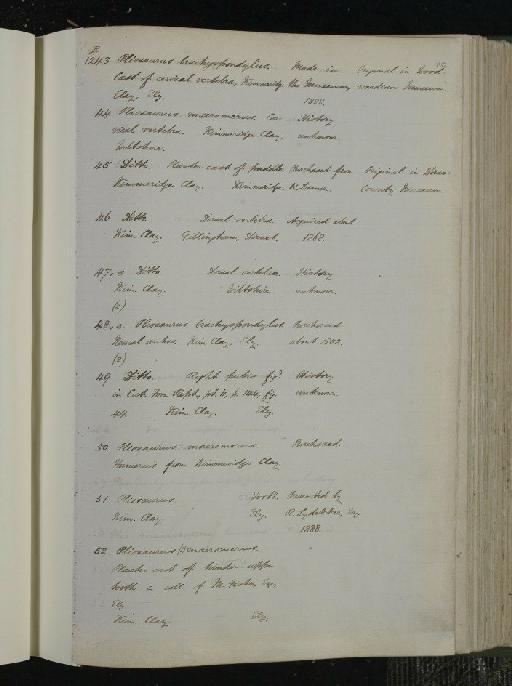 R.
1243 Pliosaurus brachyspondylus. Made in Original in Wood-
Cast of cervical vertebra, Kimmeridge the Museum, wardian Museum
Clay. Ely 1888.
44 Pliosaurus macromerus. Cer- History
vical vertebra. Kimmeridge Clay. unknown.
Wiltshire.
45 Ditto. Plaster cast of Purchased from Original in Dorset
Kimmeridge Clay. Kimmeridge. R. Damon. County Museum
46 Ditto Dorsal vertebra Acquired about
Kim. Clay. Gillingham, Dorset. 1862.
47, a Ditto Dorsal vertebra History
Kim. Clay. Wiltshire unknown.
(2)
48, a. Pliosaurus brachyspondylus Purchased
Dorsal vertebra. Kim. Clay. Ely. about
(2)
49 Ditto. Right figd. History
in Cat. Foss. Rept., pt. ii, p. fig. unknown.
44 Kim. Clay. Ely.
50 Pliosaurus macromerus Purchased.
Humerus from Kimmeridge Clay
51 Pliosaurus. Tooth. Presented by
Kim. Clay Ely. R. Lydekker, Esq.
1888
52 Pliosaurus macromerus.
Plaster cast of hinder upper
tooth in coll. of M. Fisher, Esq.
Ely
Kim. Clay. Ely.